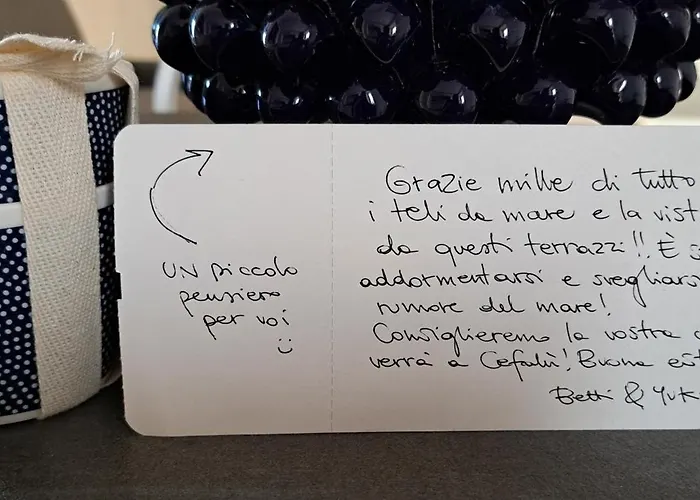 UN piccolo
pensiero
per voi
Grazie mille di tutto
i teli da mare e la
da questi terrazzi!! È
addormentarsi e
rumore del mare!
Consiglieremo la vostra
verrà a Cefalù! Buona
Betti &